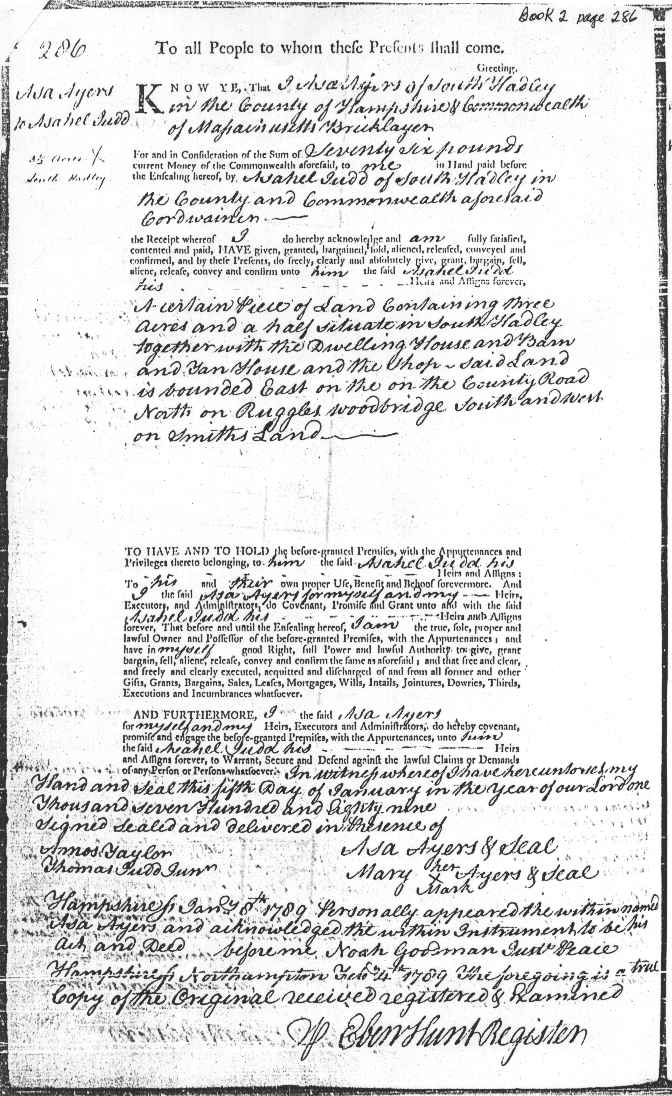 Book 2 page 286
286
To all People to whom these Presents shall come.
Greeting.
Asa Ayers
to Asahel Judd
3½ Acres
South Hadley
KNOW YE, That I Asa Ayers of South Hadley
in the County of Hampshire & Commonwealth
of Massachusetts Bricklayer
For and in Consideration of the Sum of Seventy six pounds
current Money of the Commonwealth aforesaid, to me in Hand paid before
the Ensealing hereof, by Asahel Judd of South Hadley in
the County and Commonwealth aforesaid
Cordwainer
the Receipt whereof I do hereby acknowledge and am fully satisfied,
contented and paid, HAVE given, granted, bargained, sold, aliened, released, conveyed and
confirmed, and by these Presents, do freely, clearly and absolutely give, grant, bargain, sell,
aliene, release, convey and confirm unto him the said Asahel Judd
his Heirs and Assigns forever,
A certain Piece of Land Containing three
Acres and a half situate in South Hadley
together with the Dwelling House and Barn
and Tan House and the Shop - said Land
is bounded East on the on the County Road
North on Ruggles woodbridge South and west
on Smiths Land
TO HAVE AND TO HOLD the before-granted Premises, with the Appurtenances and
Privileges thereto belonging, to him the said Asahel Judd his
Heirs and Assigns:
To his and their own proper Use, Benefit and Behoof forevermore. And
I the said Asa Ayers for myself and my Heirs,
Executors, and Administrators, do Covenant, Promise and Grant unto and with the said
Asahel Judd his Heirs and Assigns
forever, That before and until the Ensealing hereof, I am the true, sole, proper and
lawful Owner and Possessor of the before-granted Premises, with the Appurtenances; and
have in myself good Right, full Power and lawful Authority to give, grant
bargain, sell, aliene, release, convey and confirm the same as aforesaid; and that free and clear,
and freely and clearly executed, acquitted and discharged of and from all former and other
Gifts, Grants, Bargains, Sales, Leases, Mortgages, Wills, Intails, Jointures, Dowries, Thirds,
Executions and Incumbrances whatsoever.
AND FURTHERMORE, I the said Asa Ayers
for myself and my Heirs, Executors and Administrators, do hereby covenant,
promise and engage the before-granted Premises, with the Appurtenances, unto him
the said Asahel Judd his Heirs
and Assigns forever, to Warrant, Secure and Defend against the lawful Claims or Demands
of any Person or Persons whatsoever. In witness whereof I have hereunto set my
Hand and Seal this fifth Day of January in the Year of our Lord one
Thousand Seven Hundred and Eighty nine
Signed Sealed and delivered in Presence of
Amos Taylor Asa Ayers & Seal
Thomas Judd Junr Mary her X Mark Ayers & Seal
Hampshire ss Jany 8th 1789 Personally appeared the within named
Asa Ayers and acknowledged the within Instrument to be his
Act and Deed before me Noah Goodman Just Peace
Hampshire ss Northampton Feby 4th 1789 The foregoing is a true
Copy of the Original received registered & Examined
Eben Hunt Register